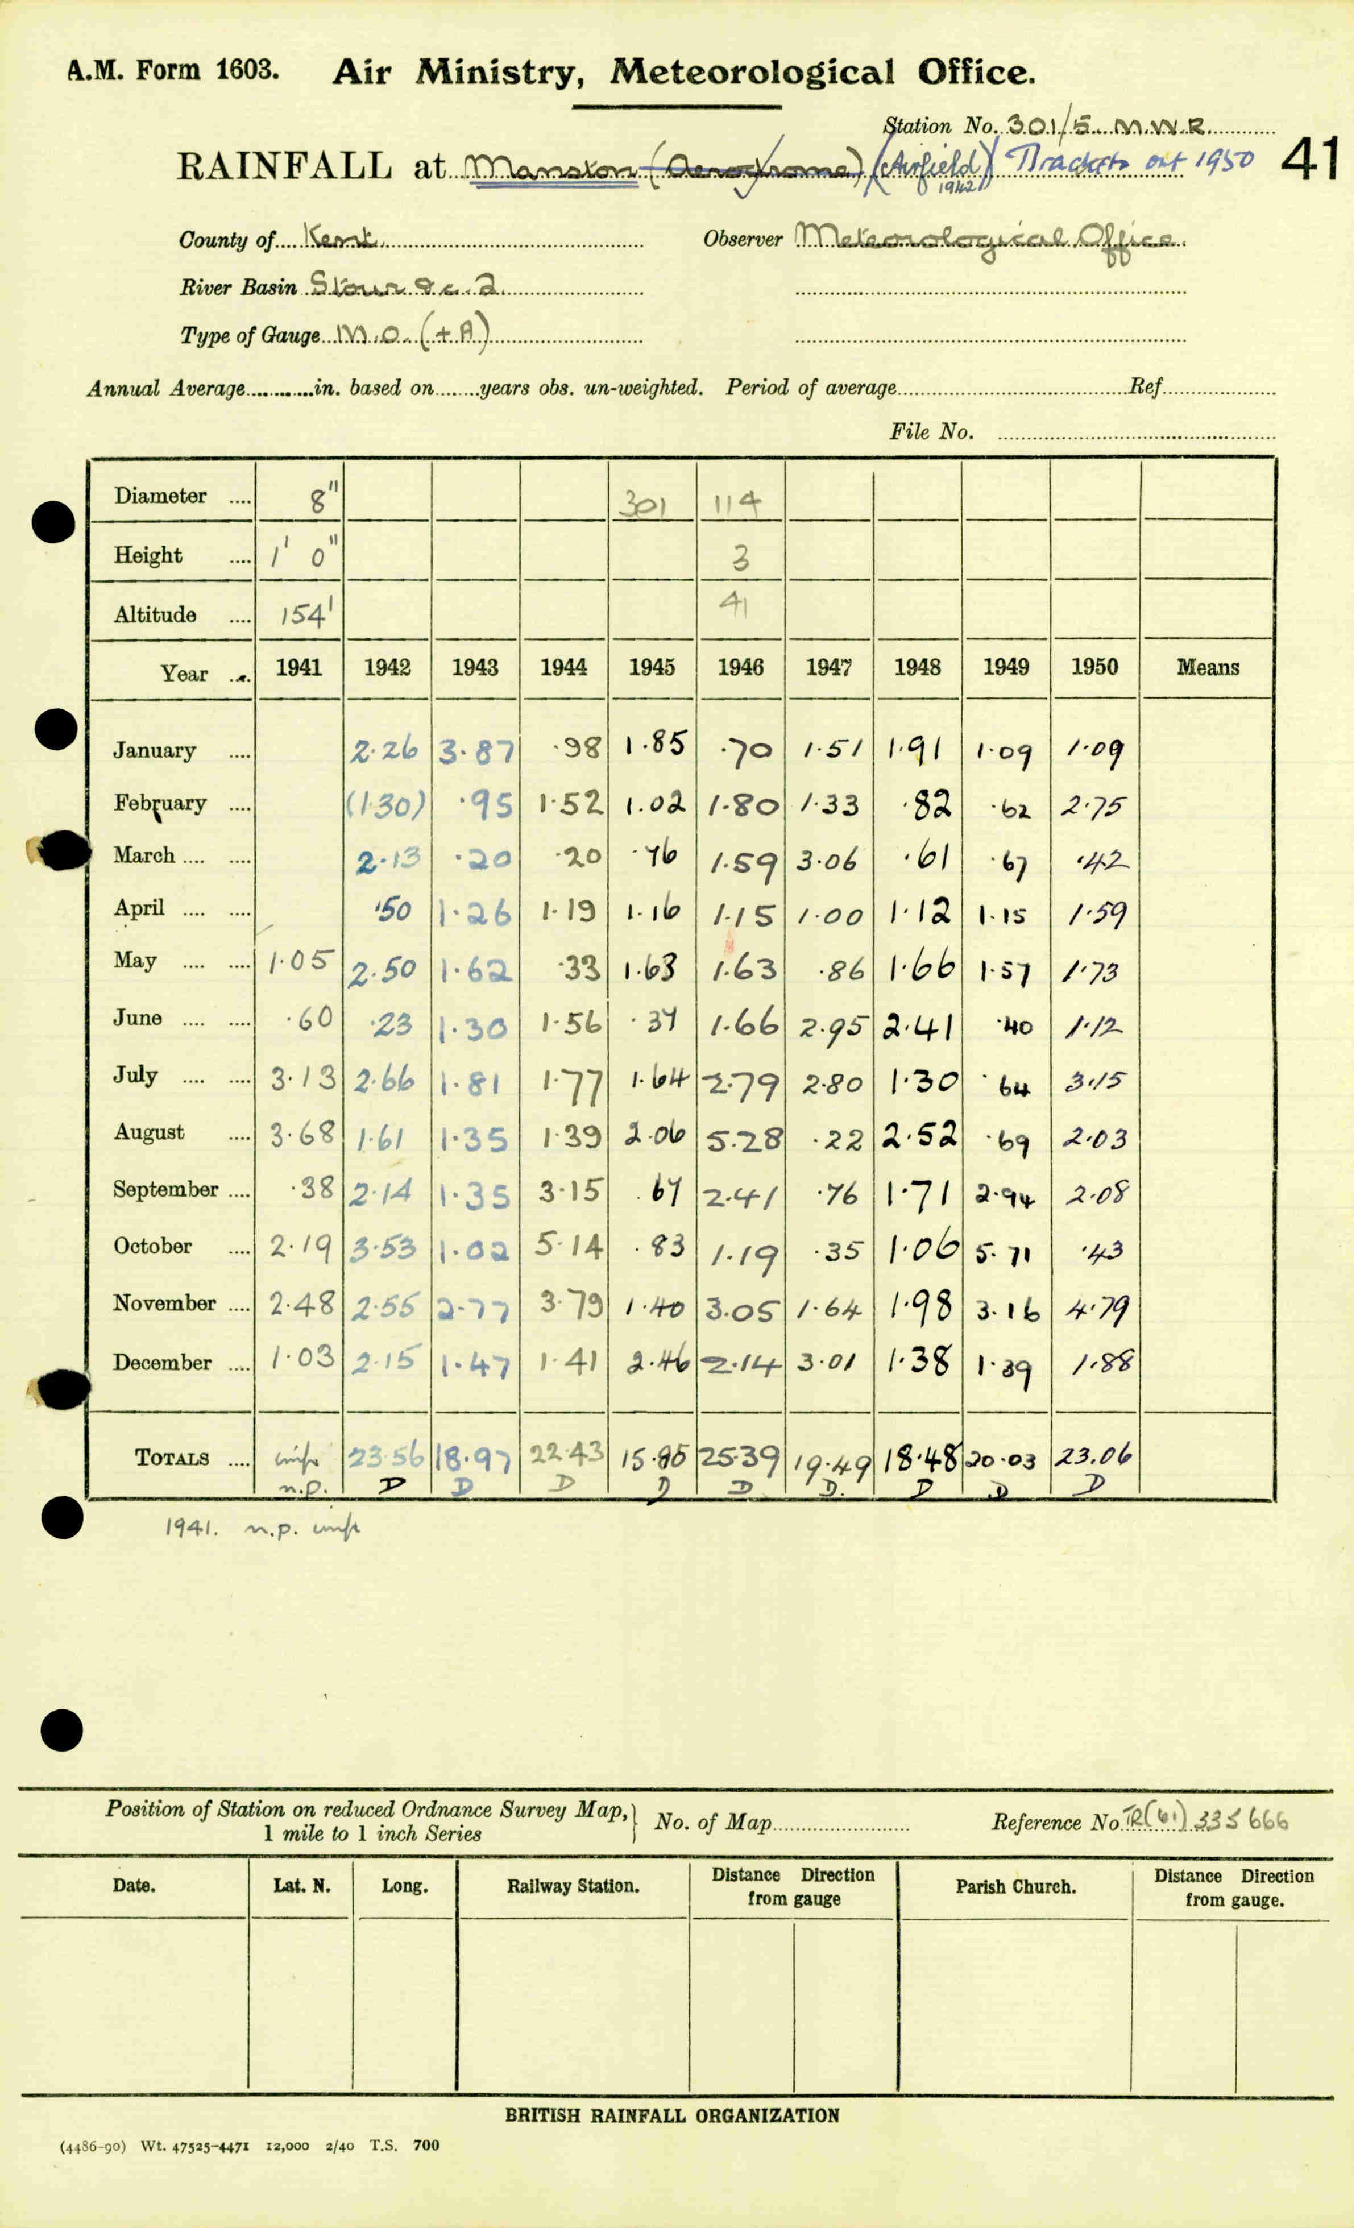 A.M. Form 1603. Air Ministry, Meteorological Office.
Station No. 301/5 M.W.R.
RAINFALL at Manston (Aerodrome) (Airfield) Brackets out 1950 41
1942
County of Kent Observer Meteorological Office
River Basin Stour &c. 2
Type of Gauge M.O. (+A)
Annual Average in. based on years obs. un-weighted. Period of average Ref
File No.
Diameter 8" 301 114
Height 1' 0" 3
Altitude 154' 41
Year 1941 1942 1943 1944 1945 1946 1947 1948 1949 1950 Means
January 2.26 3.87 .98 1.85 .70 1.51 1.91 1.09 1.09
February (1.30) .95 1.52 1.02 1.80 1.33 .82 .62 2.75
March 2.13 .20 .20 .76 1.59 3.06 .61 .67 .42
April .50 1.26 1.19 1.16 1.15 1.00 1.12 1.15 1.59
May 1.05 2.50 1.62 .33 1.63 1.63 .86 1.66 1.57 1.73
June .60 .23 1.30 1.56 .37 1.66 2.95 2.41 .40 1.12
July 3.13 2.66 1.81 1.77 1.64 2.79 2.80 1.30 .64 3.15
August 3.68 1.61 1.35 1.39 2.06 5.28 .22 2.52 .69 2.03
September .38 2.14 1.35 3.15 .67 2.41 .76 1.71 2.94 2.08
October 2.19 3.53 1.02 5.14 .83 1.19 .35 1.06 5.71 .43
November 2.48 2.55 2.77 3.79 1.40 3.05 1.64 1.98 3.16 4.79
December 1.03 2.15 1.47 1.41 2.46 2.14 3.01 1.38 1.39 1.88
TOTALS 23.56 18.97 22.43 15.85 25.39 19.49 18.48 20.03 23.06
n.p. D D D D D D. D D D
1941. n.p.
Position of Station on reduced Ordnance Survey Map, No. of Map Reference No TR(61) 335666
1 mile to 1 inch Series
Date. Lat. N. Long. Railway Station. Distance Direction from gauge Parish Church. Distance Direction from gauge.
BRITISH RAINFALL ORGANIZATION
(4486-90) Wt. 47525-4471 12,000 2/40 T.S. 700